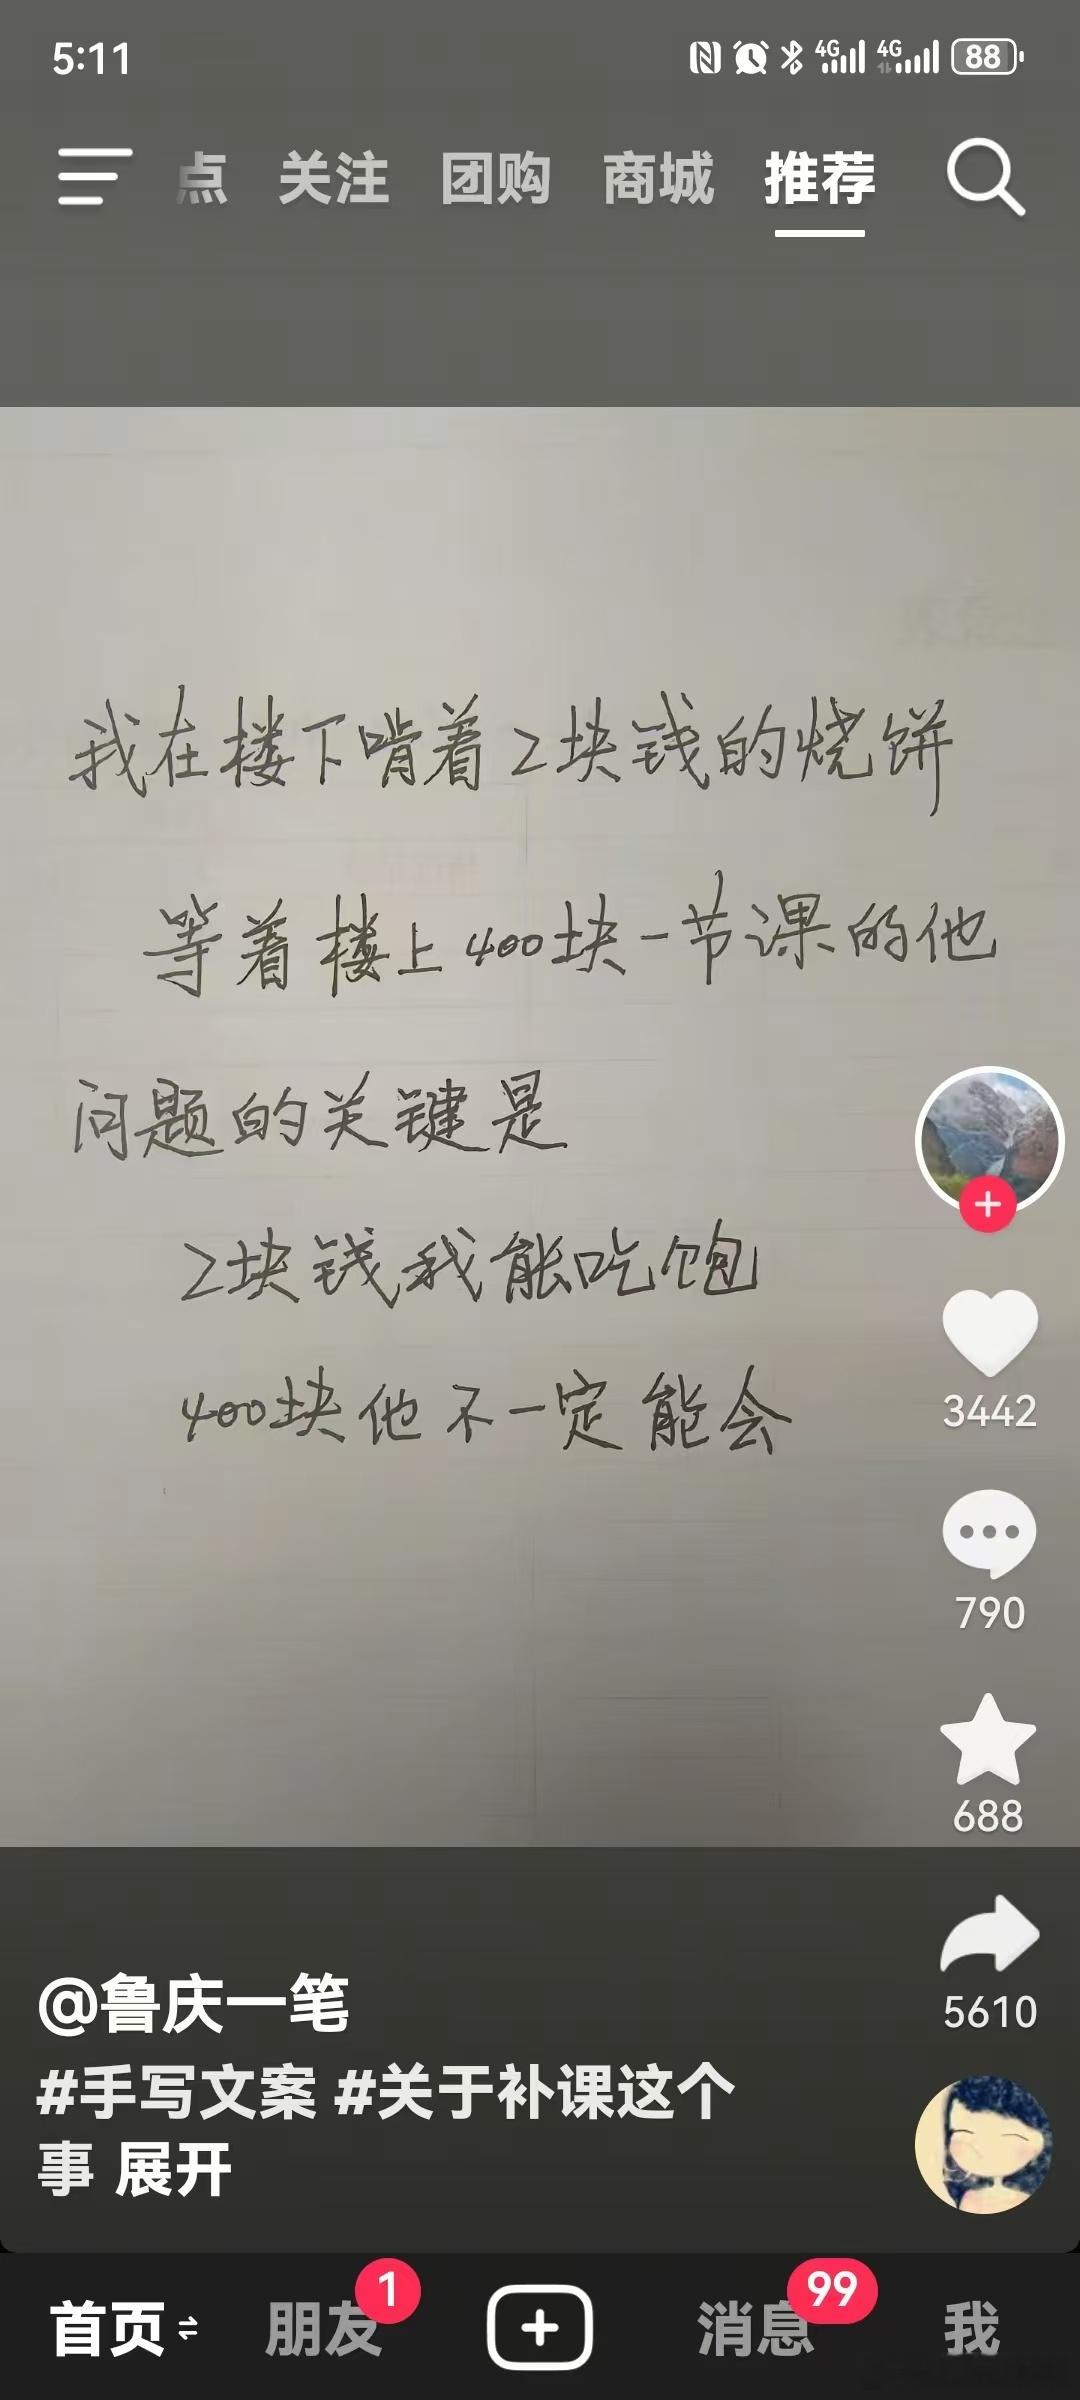 5:11
4G 4G 88
点 关注 团购 商城 推荐
我在楼下啃着2块钱的烧饼
等着楼上400块一节课的他
问题的关键是
2块钱我能吃饱
400块他不一定能会
3442
790
688
5610
@鲁庆一笔
#手写文案 #关于补课这个
事 展开
首页 朋友 1 消息 99 我